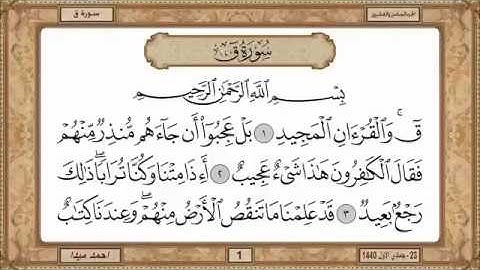 الجزء السادس والعشرين
سورة ق
سُورَةُ قٓ
بِسْمِ ٱللَّهِ ٱلرَّحْمَٰنِ ٱلرَّحِيمِ
قٓ ۚ وَٱلْقُرْءَانِ ٱلْمَجِيدِ ١ بَلْ عَجِبُوٓا۟ أَن جَآءَهُم مُّنذِرٌ مِّنْهُمْ
فَقَالَ ٱلْكَٰفِرُونَ هَٰذَا شَىْءٌ عَجِيبٌ ٢ أَءِذَا مِتْنَا وَكُنَّا تُرَابًا ۖ ذَٰلِكَ
رَجْعٌۢ بَعِيدٌ ٣ قَدْ عَلِمْنَا مَا تَنقُصُ ٱلْأَرْضُ مِنْهُمْ ۖ وَعِندَنَا كِتَٰبٌ
23- جمادي الاول 1440
1
احمد